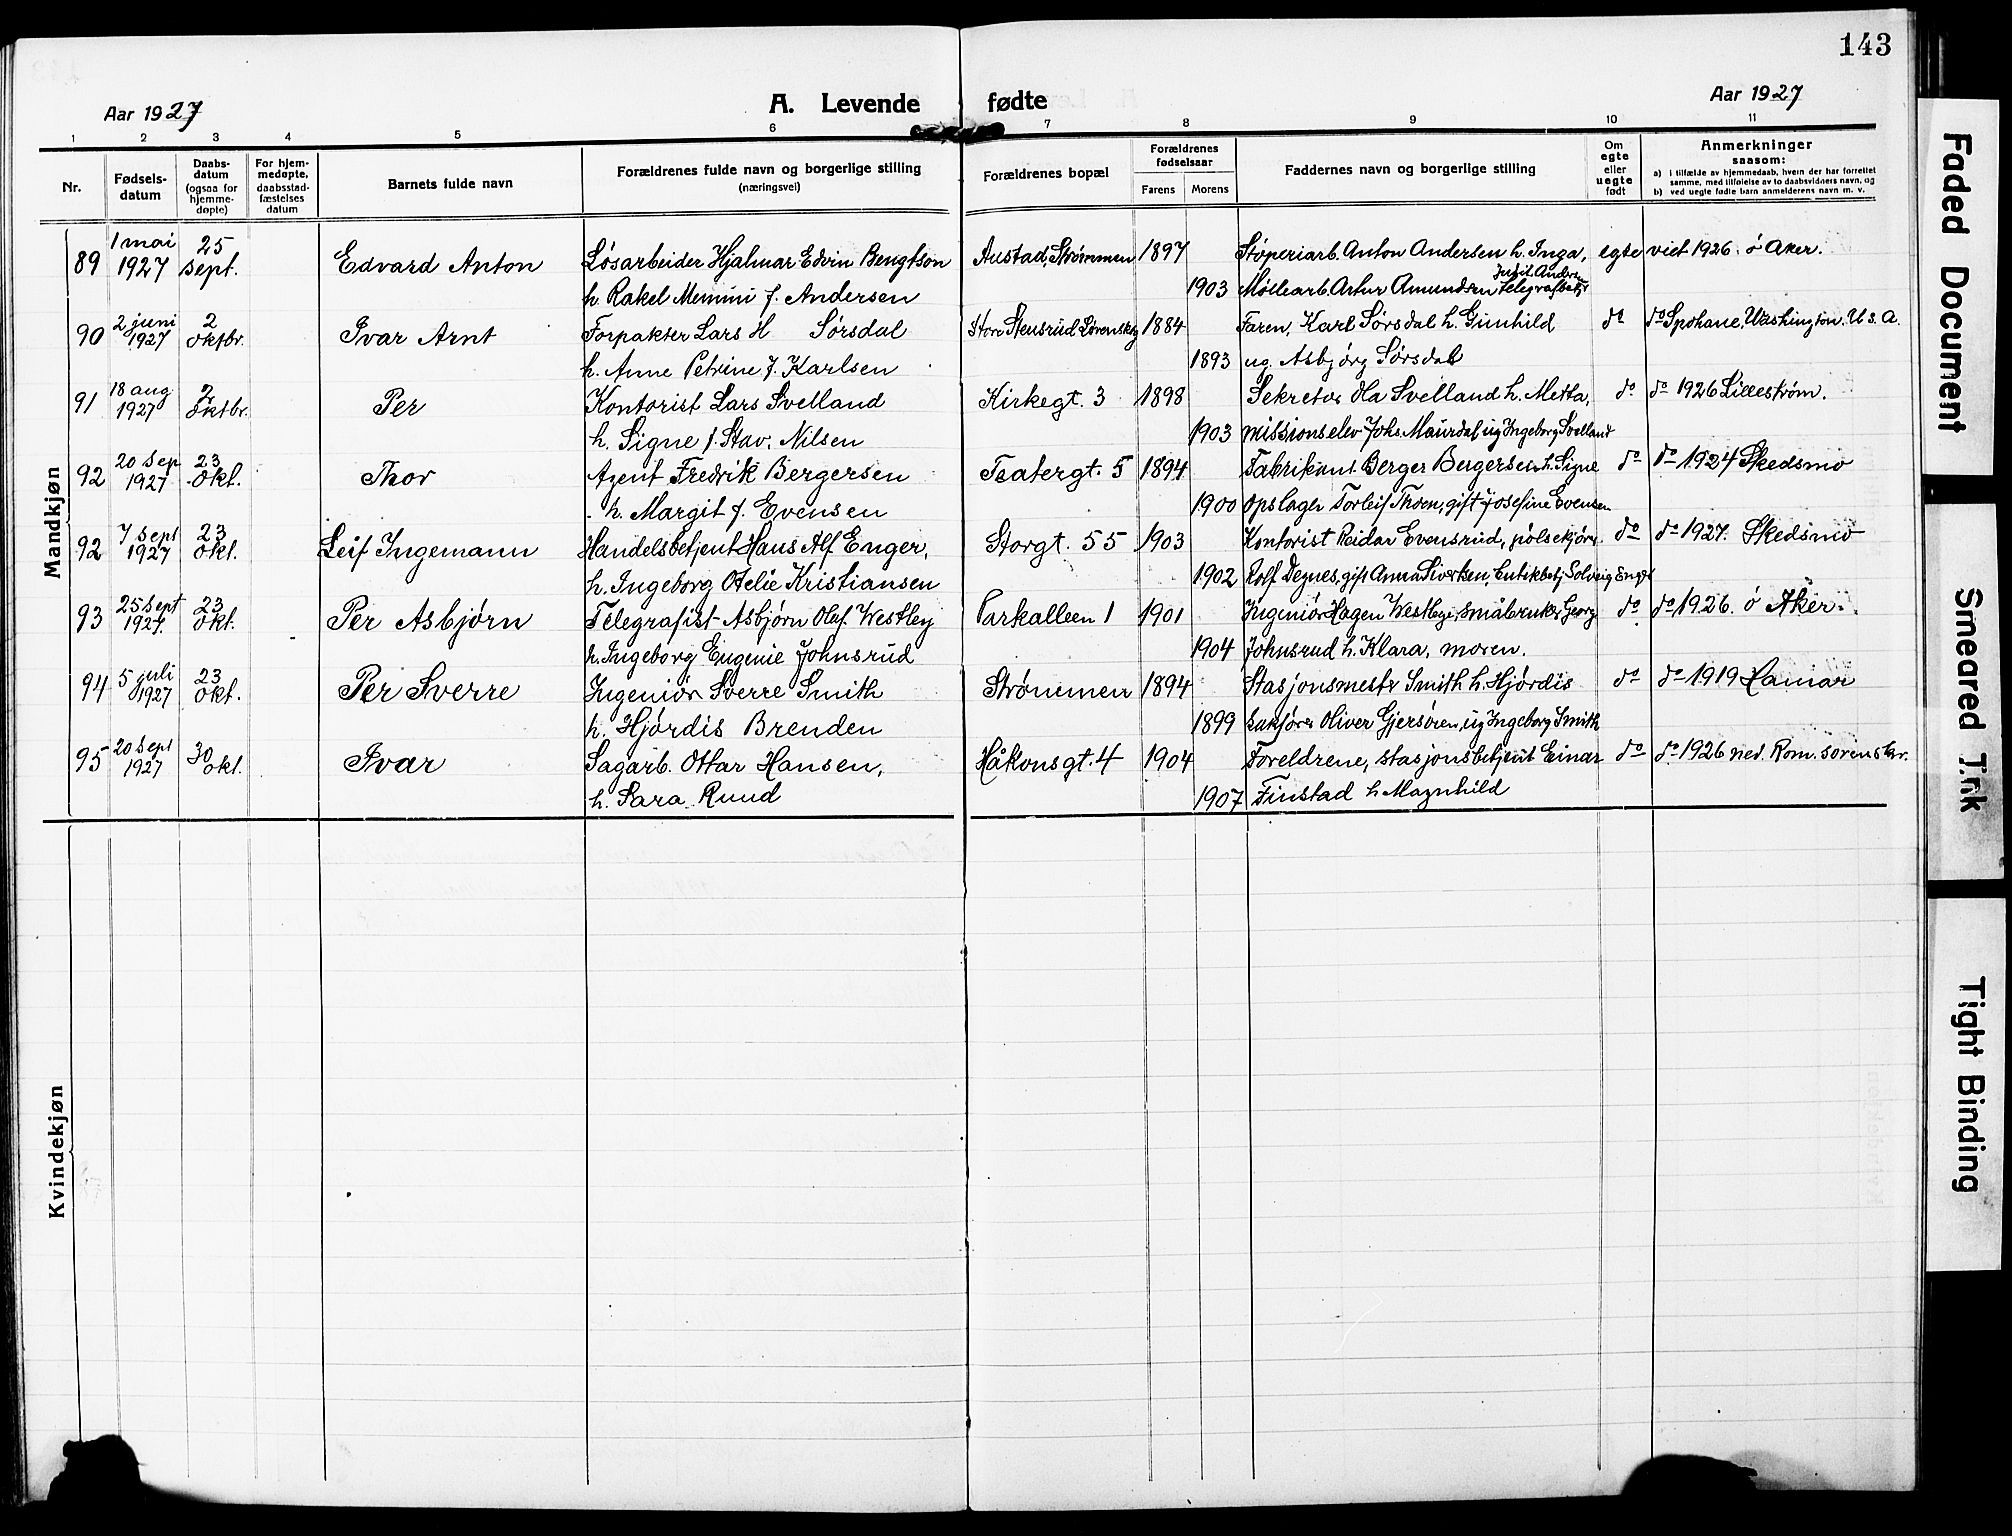 143
Aar 1927
A. Levende fødte
Aar 1927
1 2 3 4 5 6 7 8 9 10 11
Nr.
Fødsels-
datum
Daabs-
datum
(ogsaa for
hjemme-
døpte)
For hjem-
medøpte,
daabsstad-
fæstelses
datum
Barnets fulde navn
Forældrenes fulde navn og borgerlige stilling
(næringsvei)
Forældrenes bopæl
Forældrenes
fødselsaar
Farens Morens
Faddernes navn og borgerlige stilling
Om
egte
eller
uegte
født
Anmerkninger
saasom:
a) i tilfælde av hjemmedaab, hvem der har forrettet
samme, med tilføielse av to daabsvidners navn, og
b) ved uegte fødte barn anmelderens navn m. v.
Mandkjøn
89 1 mai 1927 25 sept. Edvard Anton Løsarbeider Hjalmar Edvin Bengtson Austad, Strømmen 1897 Støperiarb. Anton Andersen h. Inga, egte viet 1926. ö Aker.
h. Rakel Memini f. Andersen 1903 Møllearb. Artur Amundsen
90 2 juni 1927 2 oktbr. Ivar Arnt Forpakter Lars H Sørsdal Store Stensrud Lørenskog 1884 Faren, Karl Sørsdal h. Gunhild do do Spokane, Washington. U. S. A.
h. Anne Petrine f. Karlsen 1893 ug. Asbjørg Sørsdal
91 18 aug 1927 2 oktbr. Per Kontorist Lars Svelland Kirkegt. 3 1898 Sekretær Ola Svelland h. Metta, do do 1926 Lillestrøm.
h. Signe f. Stav. Nilsen 1903 missionselev Johs. Maurdal ug Ingeborg Svelland
92 20 sep 1927 23 okt. Thor Agent Fredrik Bergersen Teatergt. 5 1894 Fabrikant Berger Bergersen h. Signe do do 1924 Skedsmo
h. Margit f. Evensen 1900 opslager Torleif Thoen, gift Josefine Evensen
92 7 sept 1927 23 okt. Leif Ingemann Handelsbetjent Hans Alf Enger, Storgt. 55 1903 Kontorist Reidar Evensrud, pølsekjører do do 1927. Skedsmo
h. Ingeborg Otelie Kristiansen 1902 Rolf Degnes, gift Anna Sivertsen, butikbetj Solveig Enger
93 25 sept 1927. 23 okt. Per Asbjørn Telegrafist Asbjørn Olaf Westley Parkalleen 1 1901 Ingeniør Hagen Westbye, småbruker Georg do do 1926. ö Aker.
h. Ingeborg Eugenie Johnsrud 1904 Johnsrud h. Klara, moren.
94 5 juli 1927 23 okt. Per Sverre Ingeniør Sverre Smith Strømmen 1894 Stasjonsmester Smith h. Hjördis do do 1919 Hamar
h. Hjördis Brenden 1899 Oliver Gjersøren, ug Ingeborg Smith
95 20 sept 1927 30 okt. Ivar Sagarb. Ottar Hansen, Håkonsgt. 4 1904 Foreldrene, stasjonsbetjent Einar do do 1926 ned. Rom. sorenskr.
h. Sara Ruud 1907 Finstad h Magnhild
Kvindekjøn
Faded Document
Smeared Ink
Tight Binding